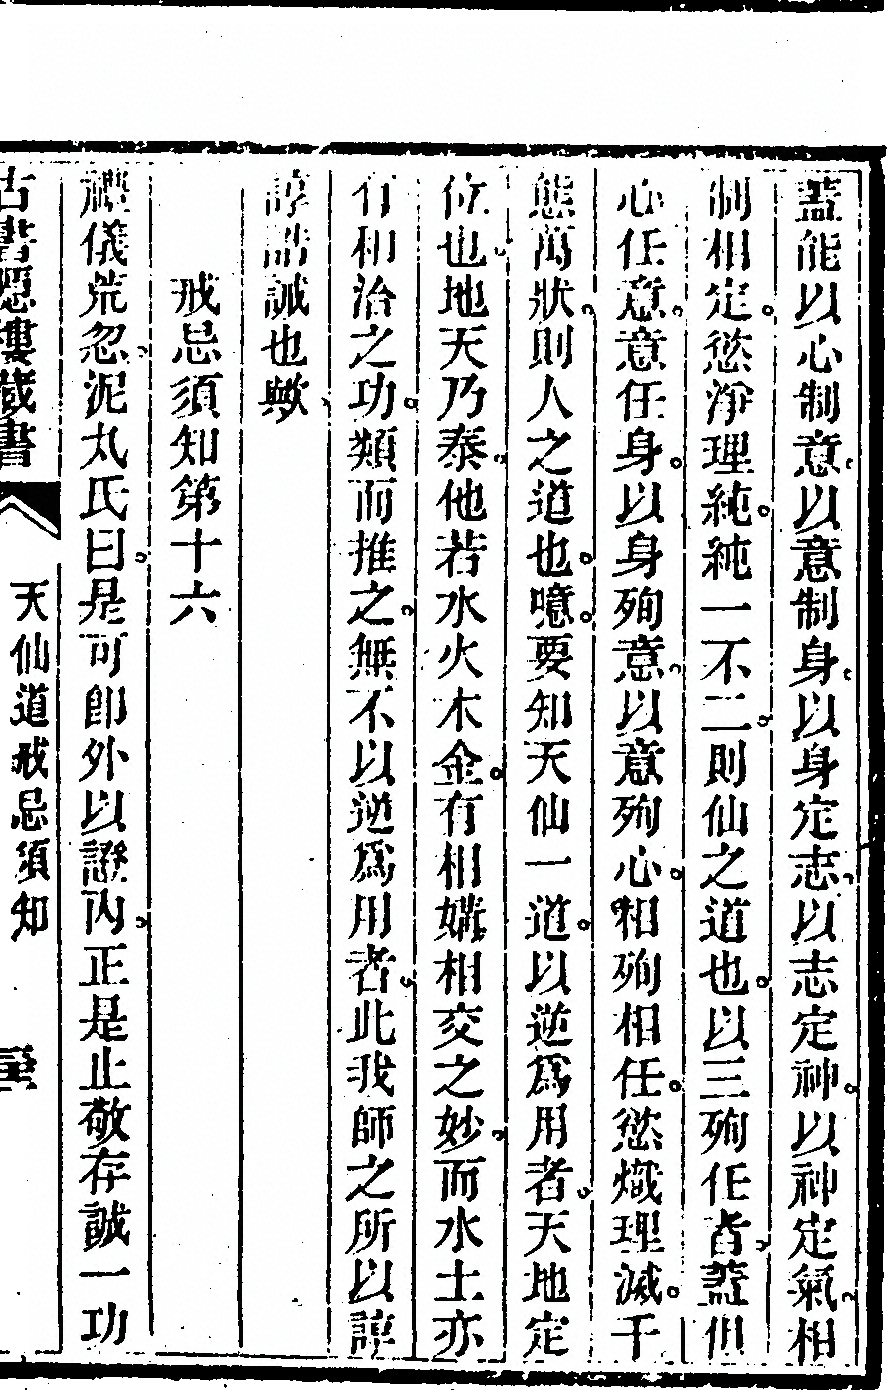 蓋能以心制意以意制身以身定志以志定神以神定氣相
制相定慾淨理純純一不二則仙之道也以三殉任者蓋但
心任意意任身以身殉意以意殉心相殉相任慾熾理滅千
態萬狀則人之道也噫要知天仙一道以逆爲用者天地定
位也地天乃泰他若水火木金有相媾相交之妙而水土亦
有和治之功類而推之無不以逆爲用者此我師之所以諄
諄誥誡也歟
戒忌須知第十六
禮儀荒忽泥丸氏曰是可卽外以證內正是止敬存誠一功
古書隱樓藏書
天仙道戒忌須知